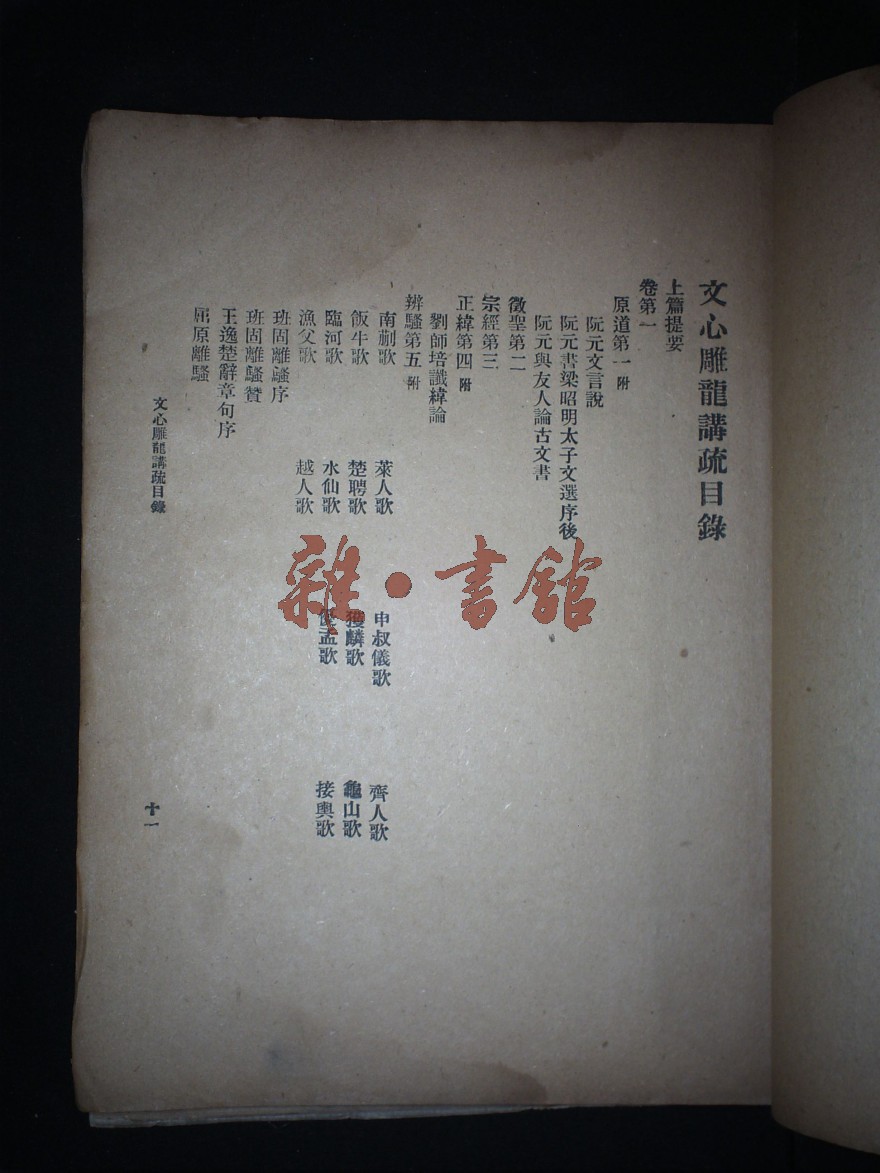 文心雕龍講疏目錄
上篇提要
卷第一
原道第一附
阮元文言說
阮元書梁昭明太子文選序後
阮元與友人論古文書
徵聖第二
宗經第三
正緯第四附
劉師培讖緯論
辨騷第五附
南蒯歌 萊人歌 申叔儀歌 齊人歌
飯牛歌 楚聘歌 獲麟歌 龜山歌
臨河歌 水仙歌 優孟歌 接輿歌
漁父歌 越人歌
班固離騷序
班固離騷贊
王逸楚辭章句序
屈原離騷
文心雕龍講疏目錄
十一
雜·書館